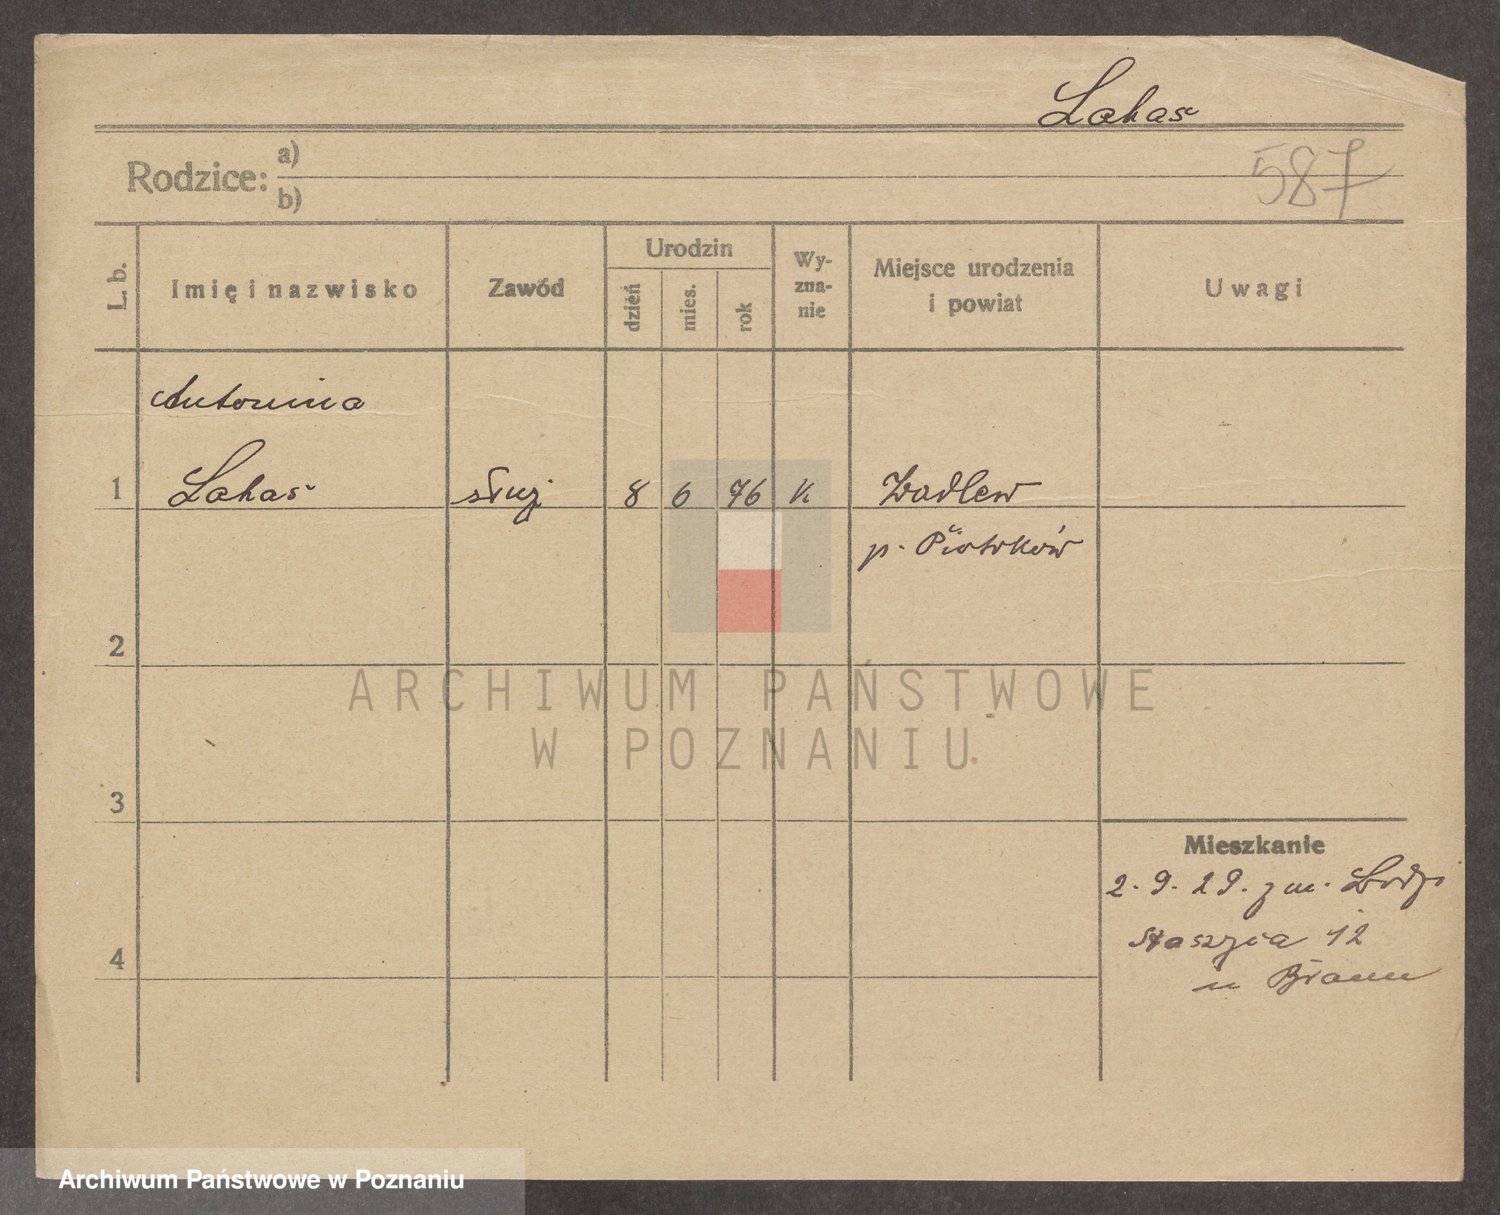 Lakas
Rodzice: a)
b)
587
L. b.
Imię i nazwisko
Zawód
Urodzin
dzień
mies.
rok
Wy-
zna-
nie
Miejsce urodzenia
i powiat
Uwagi
Antonina
1 Lakas służ 8 6 76 k Wadlew
p. Piotrków
2
3
4
Mieszkanie
2. 9. 29. z m. Łodzi
Staszyca 12
u Braun
ARCHIWUM PAŃSTWOWE
W POZNANIU
Archiwum Państwowe w Poznaniu